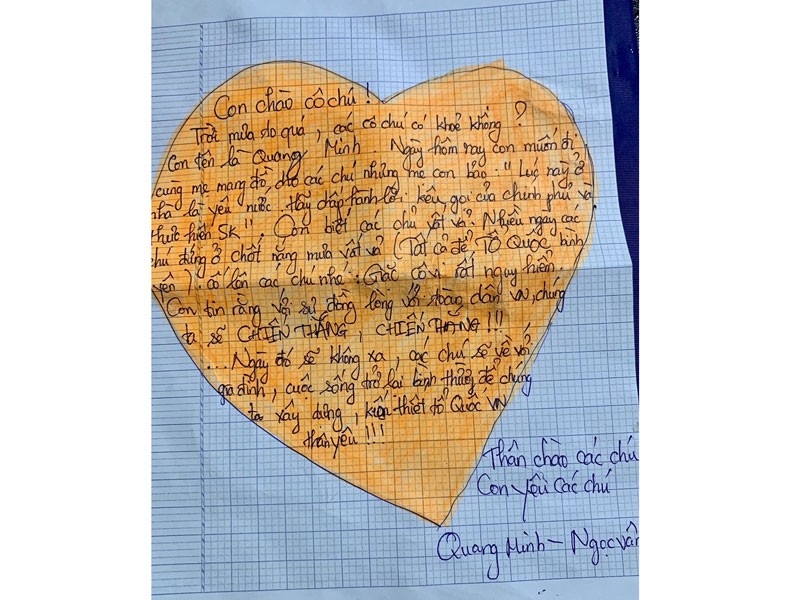 Con chào cô chú !
Trời mưa to quá, các cô chú có khoẻ không ?
Con tên là Quang Minh Ngày hôm nay con muốn đi
cùng mẹ mang đồ cho các chú nhưng mẹ con bảo : " Lúc này ở
nhà là yêu nước. Hãy đáp lời kêu gọi của chính phủ và
thực hiện 5K". Con biết các chú vất vả. Nhiều ngày các
chú đứng ở chốt nắng mưa vất vả (Tất cả để TỔ QUỐC bình
yên). cố lên các chú nhé. Giặc côvi rất nguy hiểm.
Con tin rằng với sự đồng lòng với toàn dân VN, chúng
ta sẽ CHIẾN THẮNG, CHIẾN THẮNG !!!
... Ngày đó sẽ không xa, các chú sẽ về với
gia đình, cuộc sống trở lại bình thường để chúng
ta xây dựng, kiến thiết tổ Quốc VN
thân yêu !!!
Thân chào các chú
Con yêu các chú
Quang Minh - Ngọc Vân